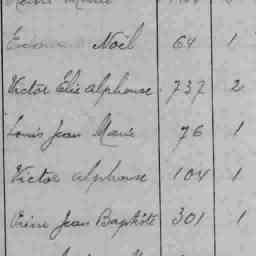 Marie
Noël 64 1
Victor Elie alphonse. 737 2
Louis Jean Marie 76 1
Victor alphonse 104 1
Pierre Jean Baptiste 301 1